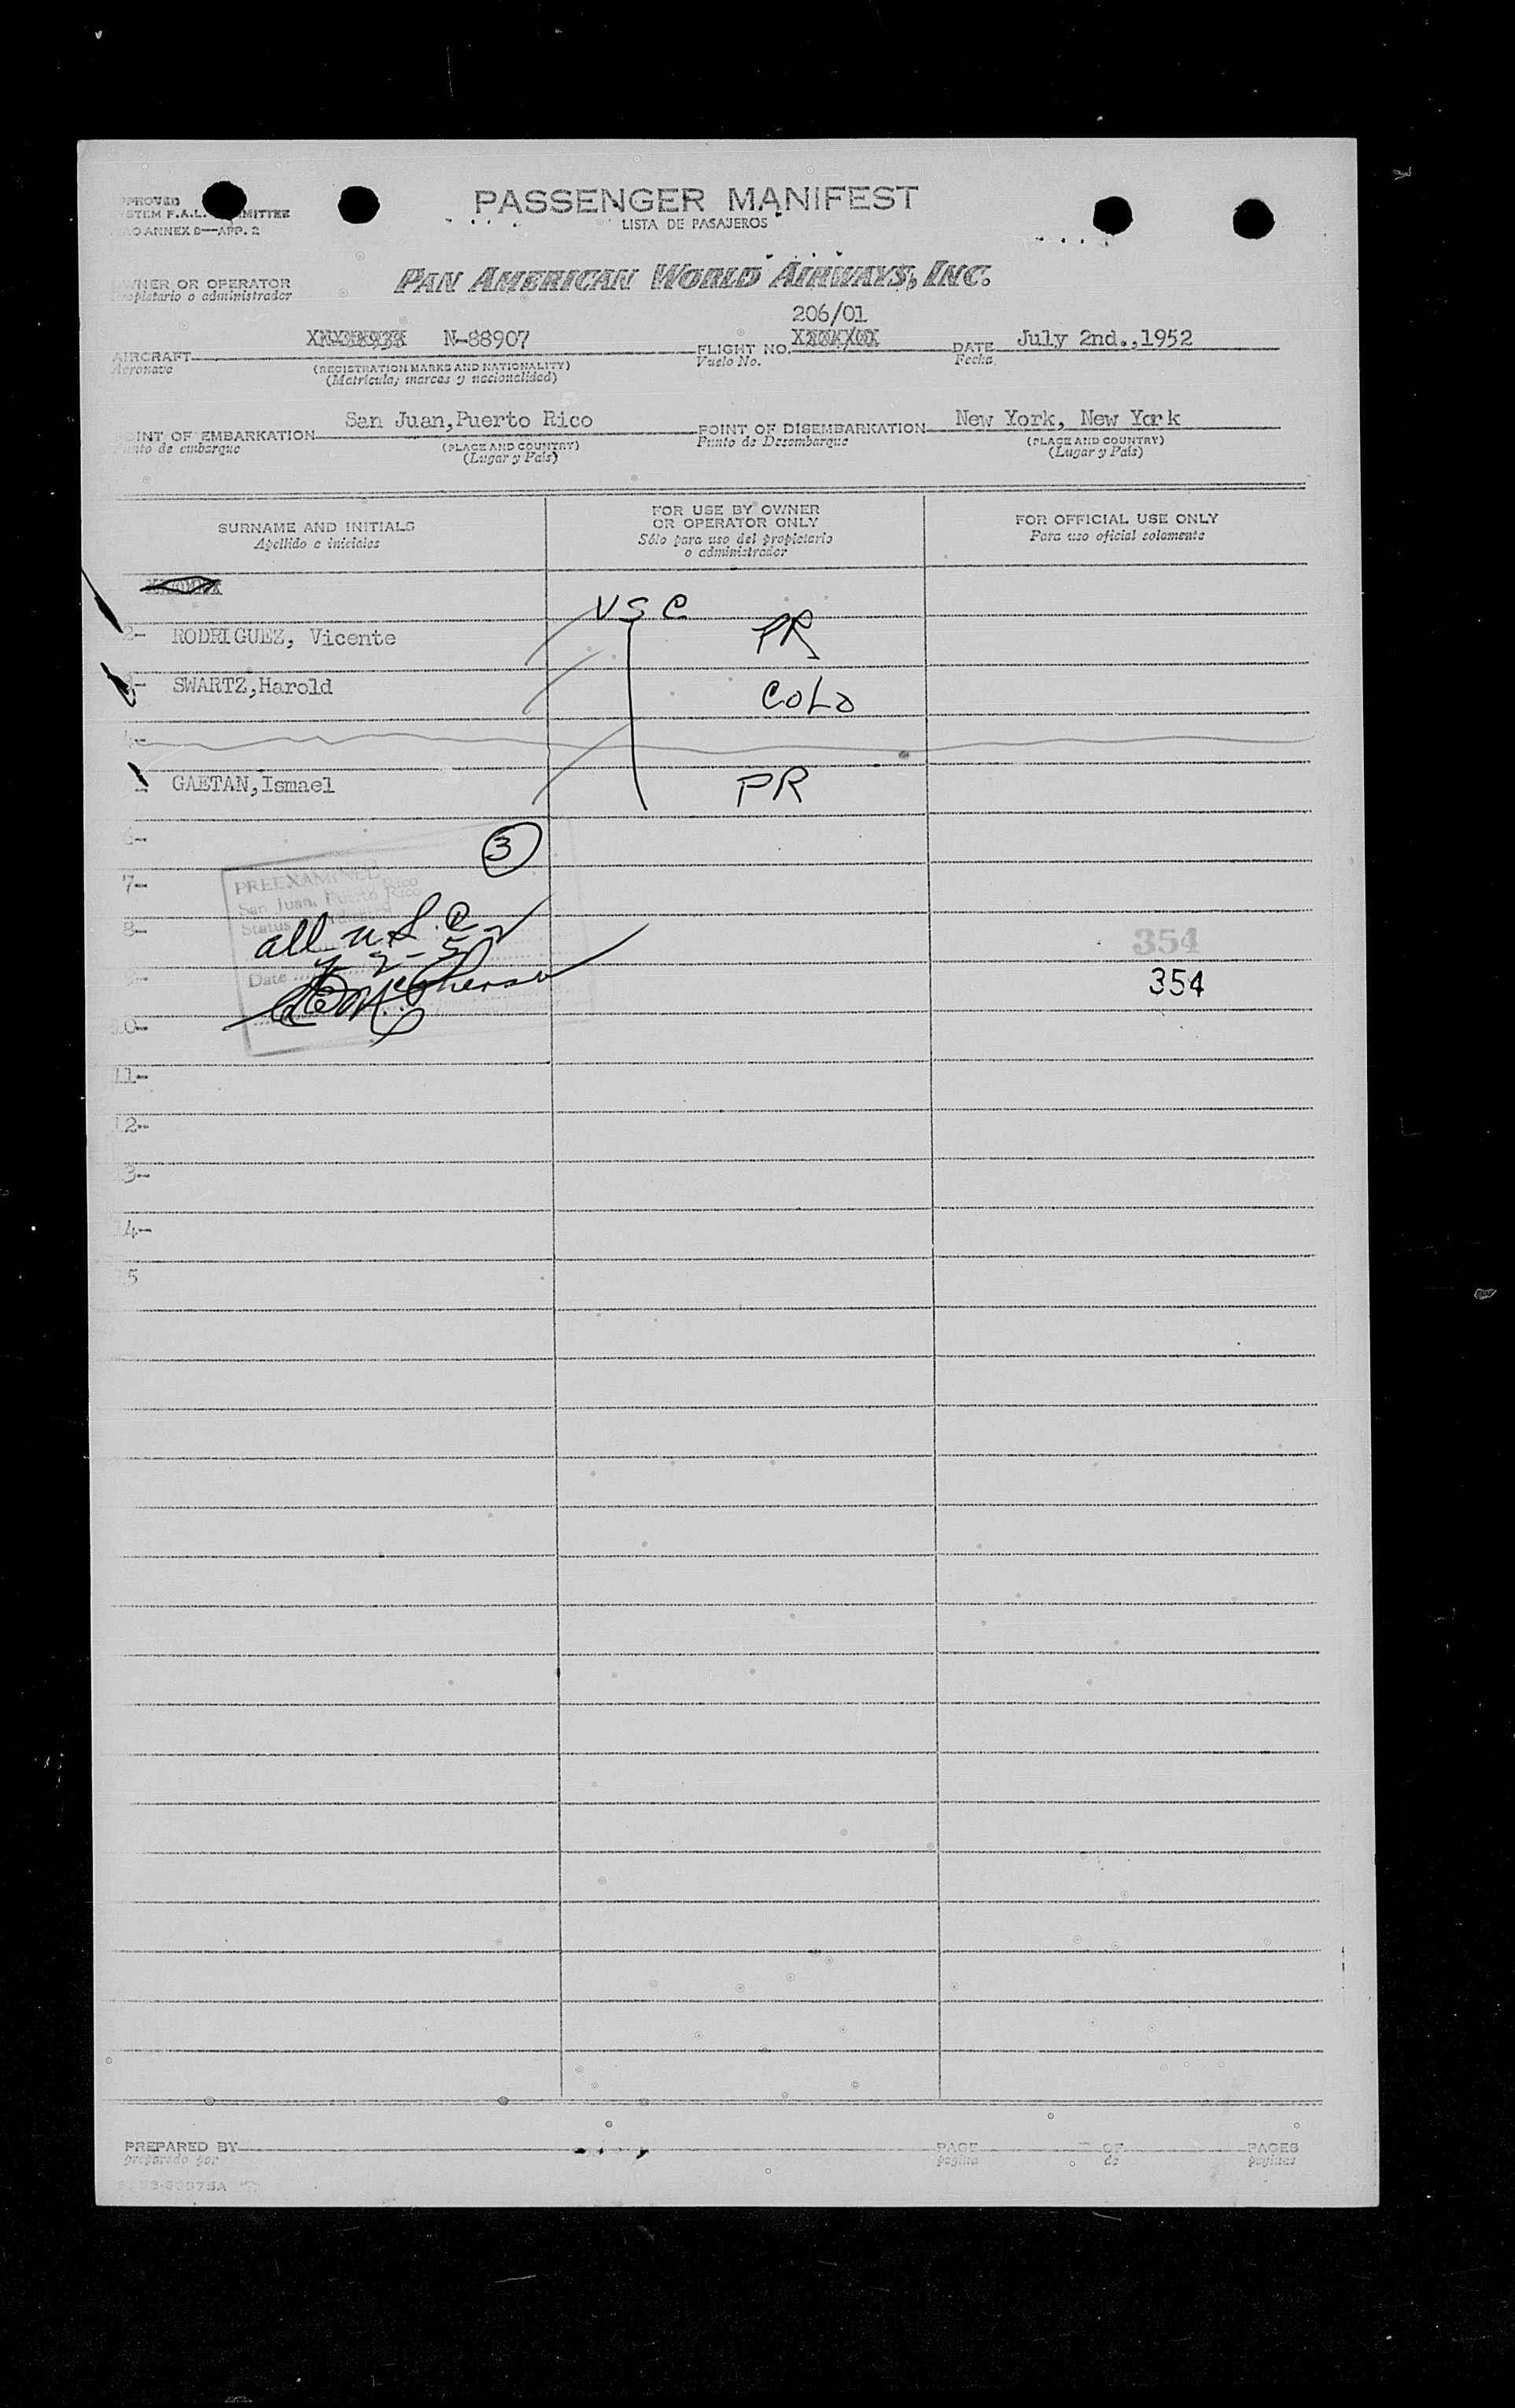 PASSENGER MANIFEST
LISTA DE PASAJEROS
PROVED
STEM F.A.L. MMITTEE
AO ANNEX 9—APP. 2
WNER OR OPERATOR
propietario o administrador
PAN AMERICAN WORLD AIRWAYS, INC.
206/01
AIRCRAFT N-88907 FLIGHT NO. DATE July 2nd.,1952
Aeronave (REGISTRATION MARKS AND NATIONALITY) Vuelo No. Fecha
(Matrícula, marcas y nacionalidad)
INT OF EMBARKATION San Juan,Puerto Rico POINT OF DISEMBARKATION New York, New York
nto de embarque (PLACE AND COUNTRY) Punto de Desembarque (PLACE AND COUNTRY)
(Lugar y País) (Lugar y País)
SURNAME AND INITIALS
Apellido e iniciales
FOR USE BY OWNER
OR OPERATOR ONLY
Sólo para uso del propietario
o administrador
FOR OFFICIAL USE ONLY
Para uso oficial solamente
USC
2- RODRIGUEZ, Vicente PR
SWARTZ,Harold COLO
4-
GAETAN,Ismael PR
3
7-
PREEXAMINED
San Juan, Puerto Rico
Status
8-
all U.S.C.
354
Date
354
10-
11-
12-
3-
14-
5
PREPARED BY PAGE OF PAGES
preparado por pagina de paginas